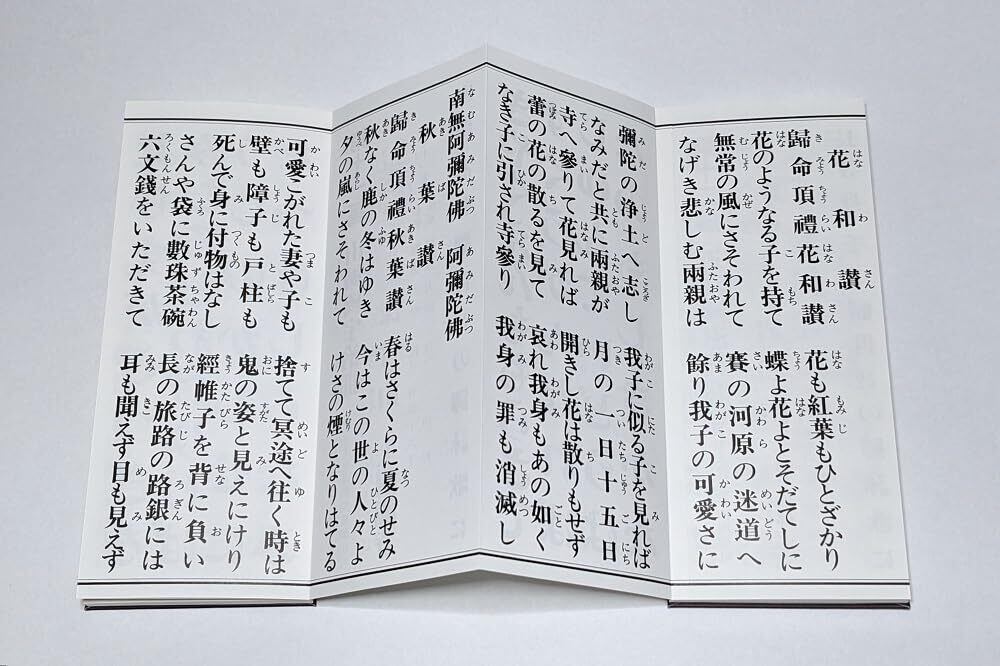 花和讃
歸命頂禮花和讃　花も紅葉もひとざかり
花のようなる子を持て　蝶よ花よとそだてしに
無常の風にさそわれて　賽の河原の迷道へ
なげき悲しむ兩親は　餘り我子の可愛さに
彌陀の浄土へ志し　我子に似る子を見れば
なみだと共に兩親が　月の一日十五日
寺へ參りて花見れば　開きし花は散りもせず
蕾の花の散るを見て　哀れ我身もあの如く
なき子に引され寺參り　我身の罪も消滅し
南無阿彌陀佛　阿彌陀佛
秋葉讃
歸命頂禮秋葉讃　春はさくらに夏のせみ
秋なく鹿の冬はゆき　今はこの世の人々よ
夕の嵐にさそわれて　けさの煙となりはてる
可愛こがれた妻や子も　捨てて冥途へ往く時は
壁も障子も戸柱も　鬼の姿と見えにけり
死んで身に付物はなし　經帷子を背に負い
さんや袋に數珠茶碗　長の旅路の路銀には
六文錢をいただきて　耳も聞えず目も見えず